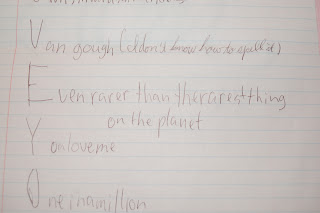 Van gough (I don't know how to spell it)
Even rarer than the rarest thing
on the planet
You love me
One in a million